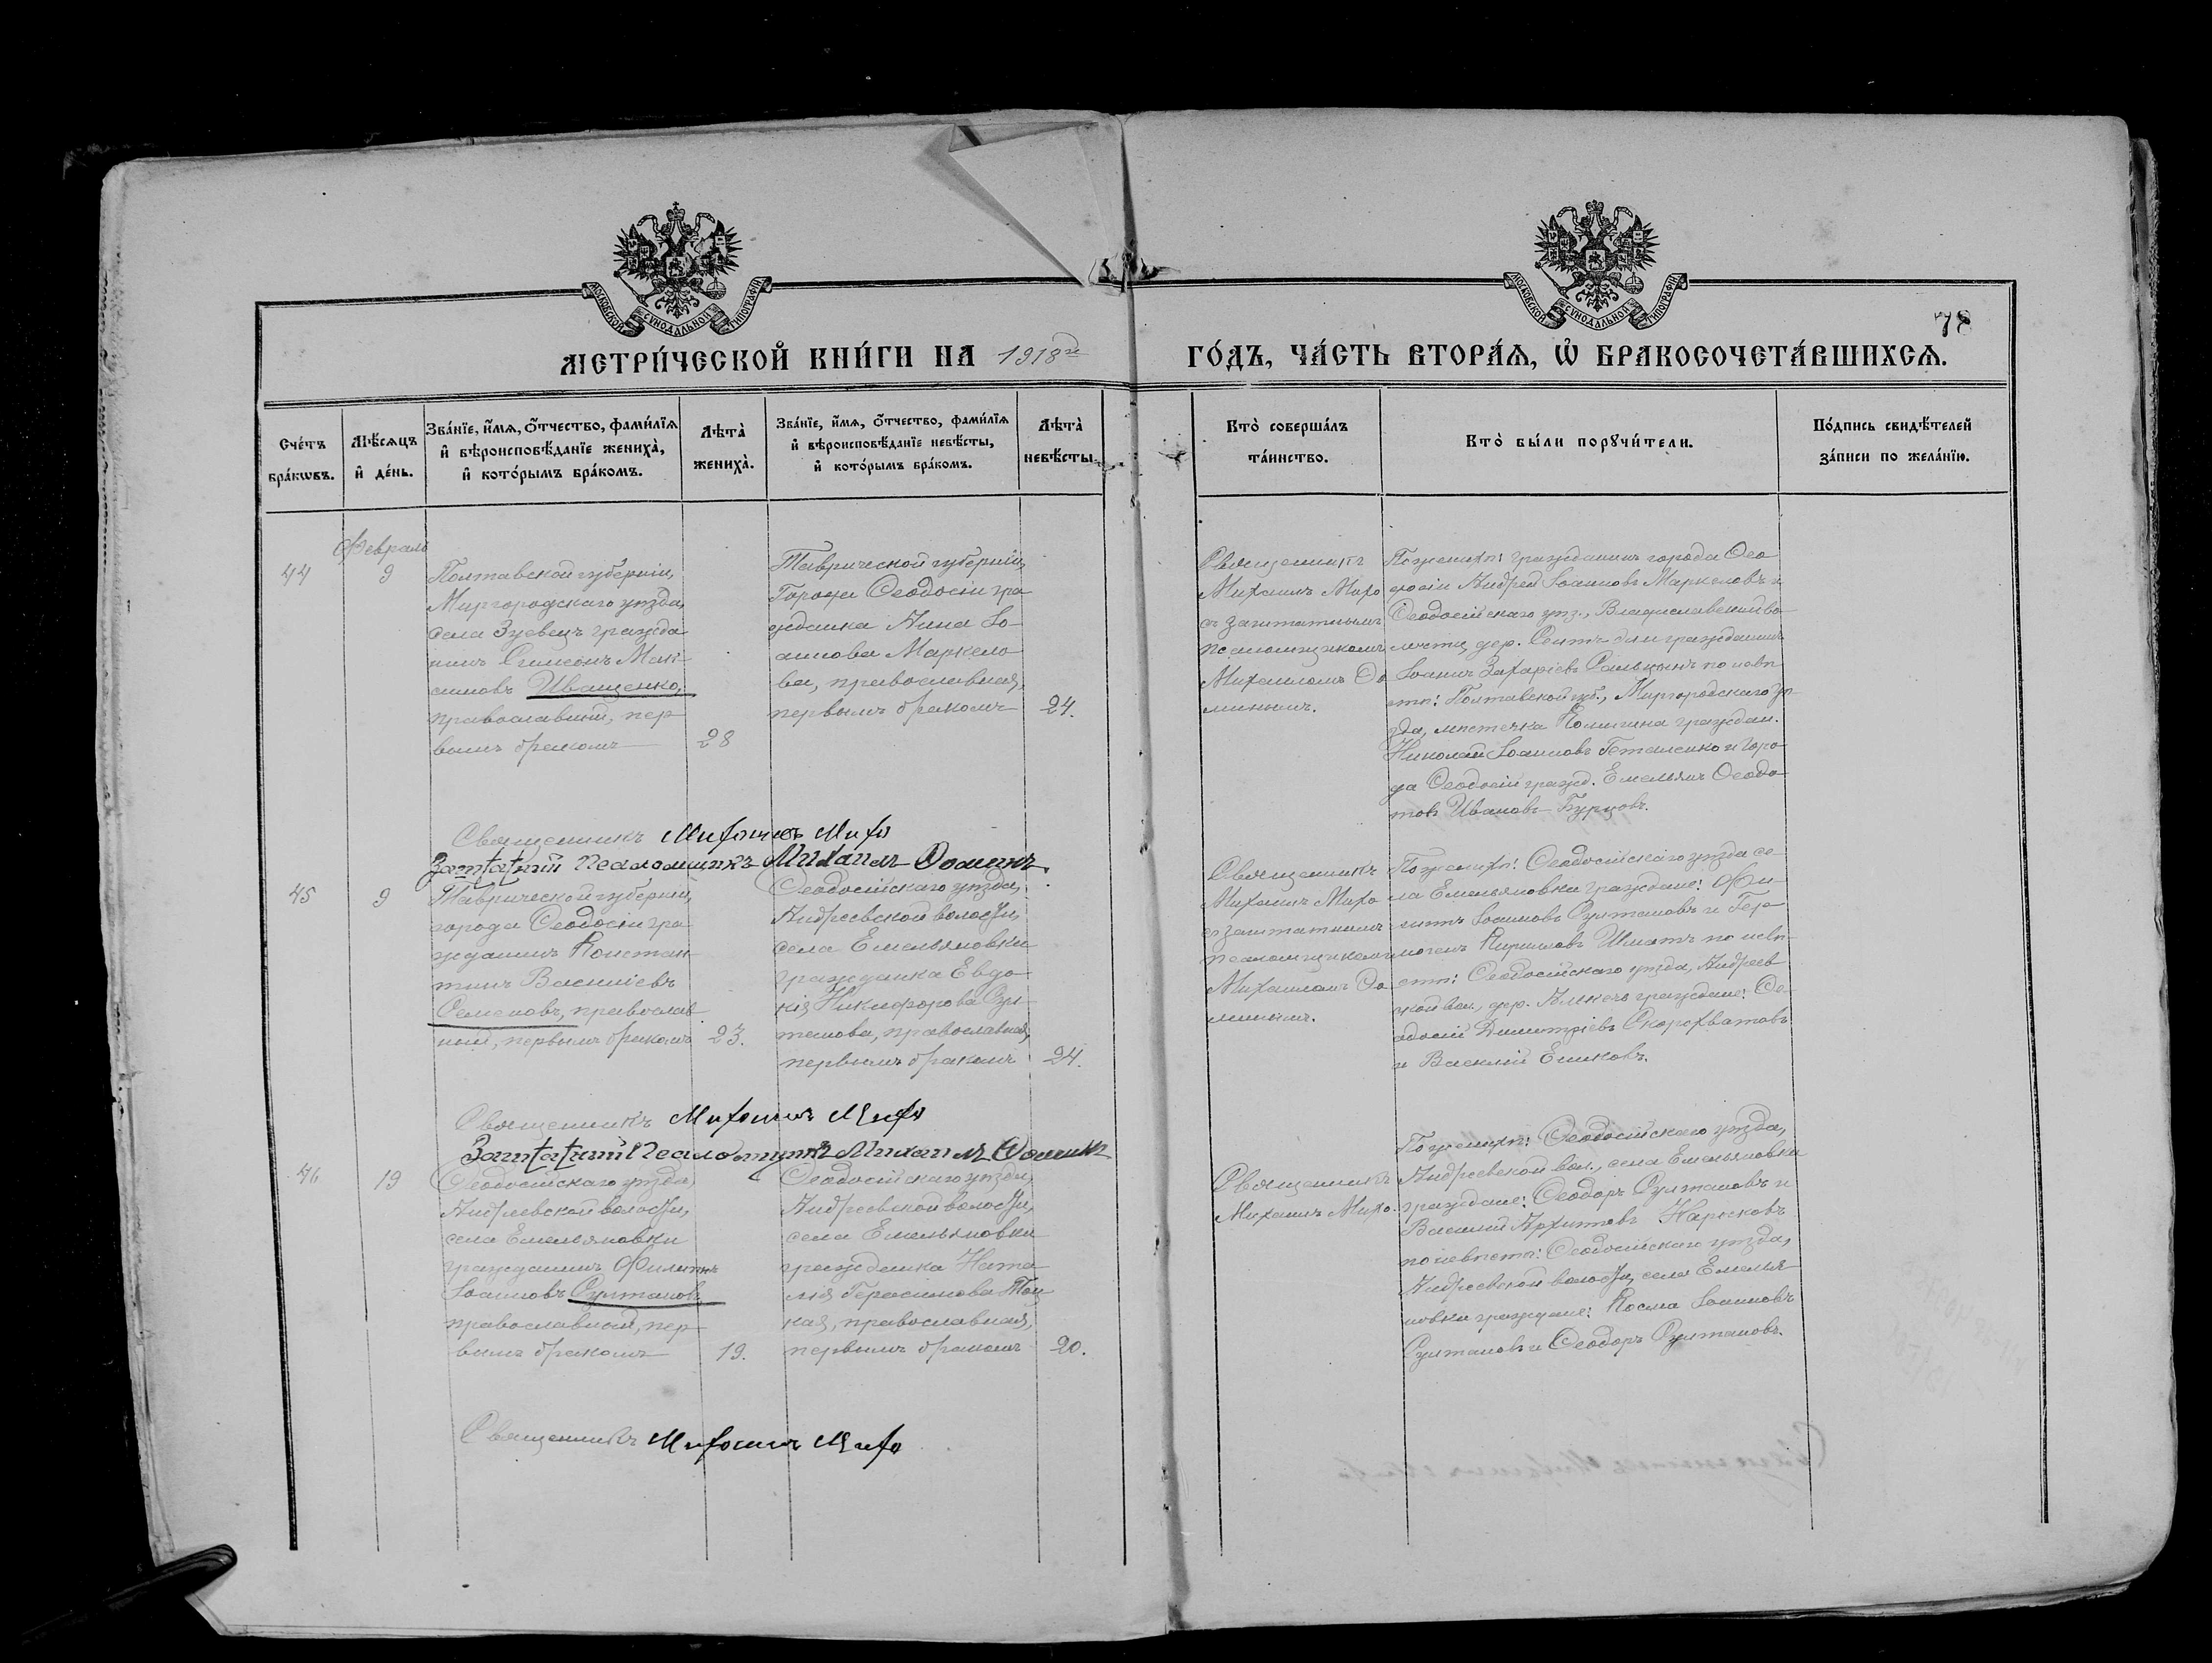 МОСКОВСКОЙ СѴНОДАЛЬНОЙ ТИПОГРАФІИ
МОСКОВСКОЙ СѴНОДАЛЬНОЙ ТИПОГРАФІИ
78
МЕТРИ́ЧЕСКОЙ КНИ́ГИ НА 1918й
ГО́ДЪ, ЧА́СТЬ ВТОРА́Ѧ, Ѡ҆ БРАКОСОЧЕТА́ВШИХСѦ.
Сче́тъ бра́кѡвъ.
Мѣ́сѧцъ и҆ де́нь.
Зва́нїе, и҆́мѧ, ѻ҆́тчество, фами́лїѧ
и҆ вѣроисповѣ́данїе жениха̀,
и҆ кото́рымъ бра́комъ.
Лѣта̀ жениха̀.
Зва́нїе, и҆́мѧ, ѻ҆́тчество, фами́лїѧ
и҆ вѣроисповѣ́данїе невѣ́сты,
и҆ кото́рымъ бра́комъ.
Лѣта̀ невѣ́сты.
Кто̀ соверша́лъ
та́инство.
Кто̀ бы́ли порꙋчи́тели.
По́дпись свидѣ́телей
за́писи по жела́нїю.
Февраль
44
9
Полтавской губерніи,
Миргородскаго уѣзда,
села Зуевец гражда
нинъ Симеонъ Мак-
симовъ Иващенко,
православный, пер
вымъ бракомъ
28
Таврической губерніи,
Города Ѳеодосіи гра
жданка Анна Іо-
аннова Маркело
ва, православная,
первымъ бракомъ
24.
Священникъ
Михаилъ Михо
съ заштатнымъ
псаломщикомъ
Михаиломъ Ѳо
минымъ.
По женихѣ: гражданинъ города Ѳео
досіи Андрей Іоанновъ Маркеловъ и
Ѳеодосійскаго уѣз., Владиславской во
лости, дер. гражданинъ
Іоаннъ Захаріевъ по невѣ
стѣ: Полтавской губ., Миргородскаго уѣ-
зда, мѣстечка граждан.
Николай Іоанновъ Геталенко и горо
да Ѳеодосіи гражд. Емельянъ Ѳеодо
товъ Ивановъ-Бурцовъ.
Священникъ Михаилъ Михо
Заштатный Псаломщикъ Михаилъ Ѳоминъ.
45
9
Таврической губерніи,
города Ѳеодосіи гра
жданинъ Констан
тинъ Васильевъ
Семеновъ, православ
ный, первымъ бракомъ
23.
Ѳеодосійскаго уѣзда,
Андреевской волости,
села Емельяновки
гражданка Евдо
кія Никифорова Сул
танова, православная,
первымъ бракомъ
24.
Священникъ
Михаилъ Михо
съ заштатнымъ
псаломщикомъ
Михаиломъ Ѳо
минымъ.
По женихѣ: Ѳеодосійскаго уѣзда се
ла Емельяновки граждане: Фи
липпъ Іоанновъ Султановъ и Гер
могенъ Кирилловъ по невѣ
стѣ: Ѳеодосійскаго уѣзда, Андреев
ской вол., дер. граждане: Ѳе-
одосій Димитріевъ Скорохватовъ
и Василій Ешковъ.
Священникъ Михаилъ Михо
Заштатный Псаломщикъ Михаилъ Ѳоминъ
46
19
Ѳеодосійскаго уѣзда,
Андреевской волости,
села Емельяновки
гражданинъ Филиппъ
Іоанновъ Султановъ
православный, пер
вымъ бракомъ
19.
Ѳеодосійскаго уѣзда,
Андреевской волости,
села Емельяновки
гражданка Ната
лія Герасимова
православная,
первымъ бракомъ
20.
Священникъ
Михаилъ Михо.
По женихѣ: Ѳеодосійскаго уѣзда,
Андреевской вол., села Емельяновки
граждане: Ѳеодоръ Султановъ и
Василій Архиповъ Нарысковъ
по невѣстѣ: Ѳеодосійскаго уѣзда,
Андреевской волости, села Емелья
новки граждане: Косма Іоанновъ
Султановъ и Ѳеодоръ Султановъ.
Священникъ Михаилъ Михо